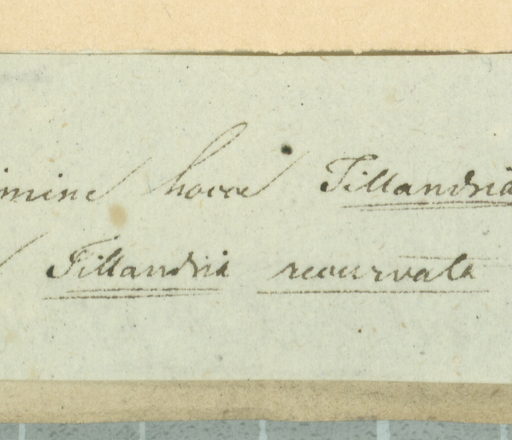 imine hocce Tillandsia
Tillandsia recurvata